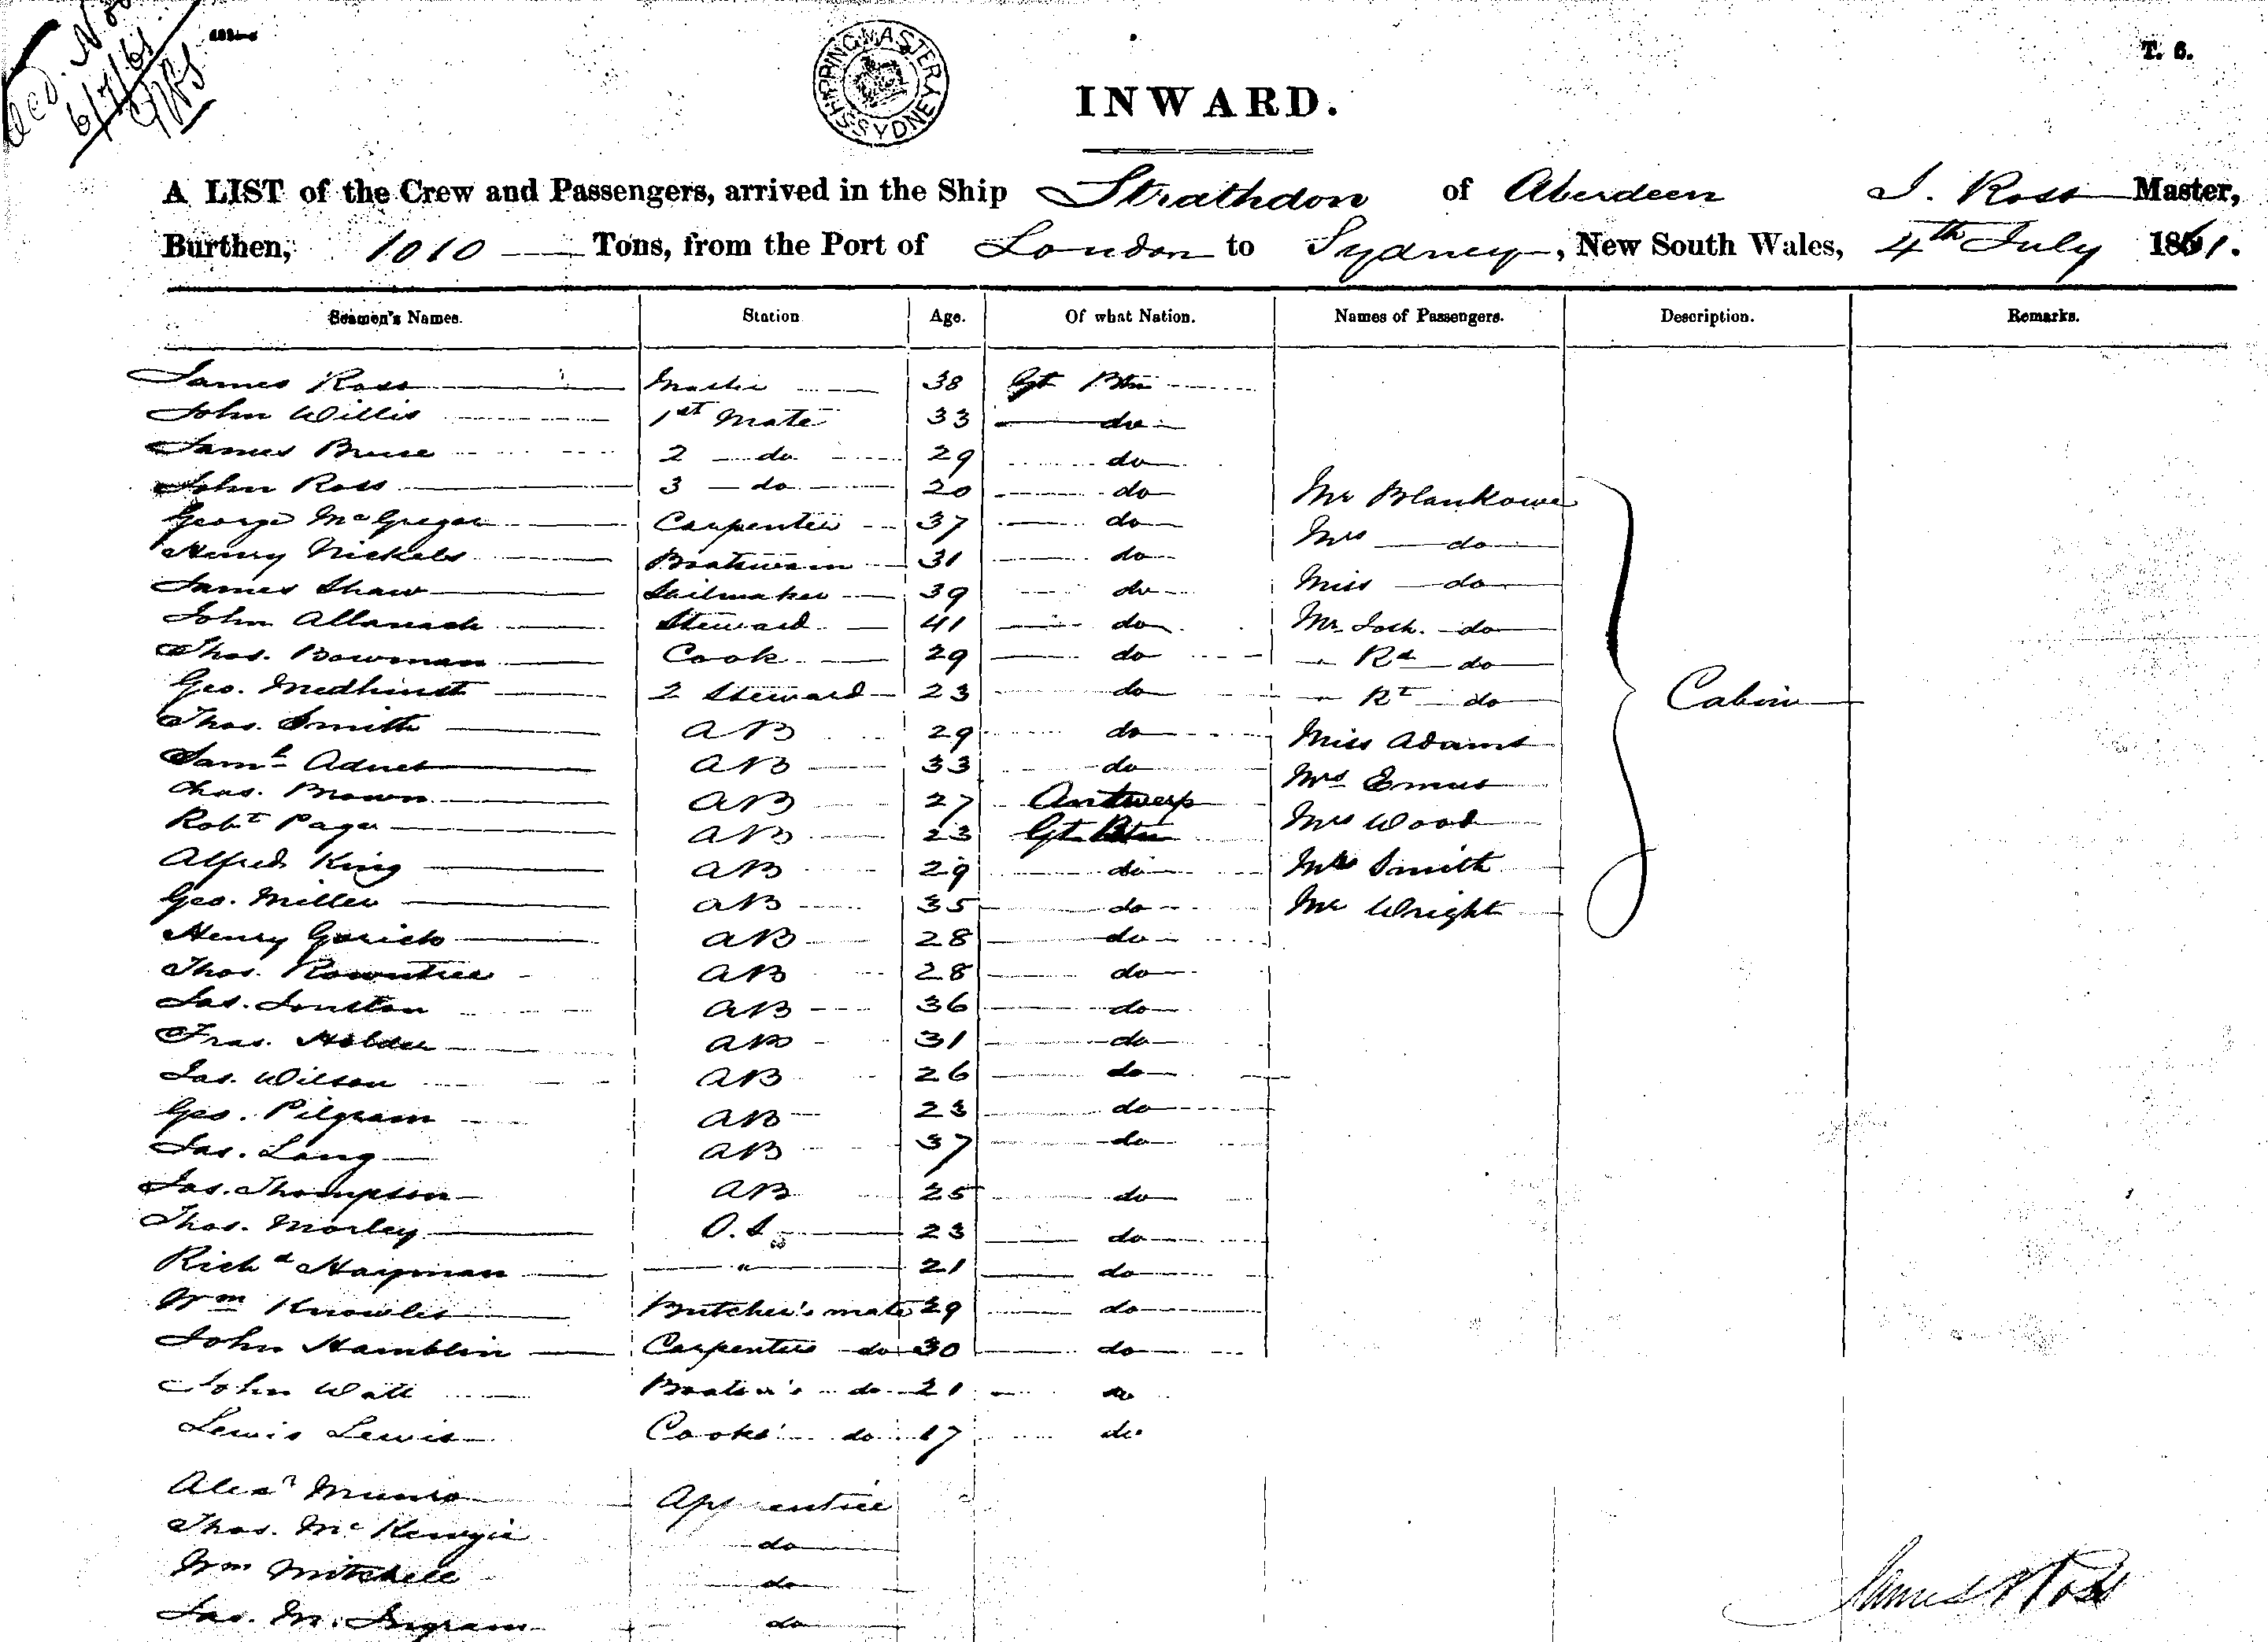 6/7/61
SHIPPING MASTER SYDNEY
T. 6.
INWARD.
A LIST of the Crew and Passengers, arrived in the Ship Strathdon of Aberdeen J. Ross Master,
Burthen, 1010 Tons, from the Port of London to Sydney, New South Wales, 4th July 1861.
Seamen's Names. Station Age. Of what Nation. Names of Passengers. Description. Remarks.
James Ross Master 38 Gt Btn
John Willis 1st Mate 33 do
James Bruce 2 do 29 do
John Ross 3 do 20 do Mr Blankowe
George McGregor Carpenter 37 do Mrs do
Henry Nickels Boatswain 31 do
James Shaw Sailmaker 39 do Miss do
John Allanach Steward 41 do Mr do
Thos. Bowman Cook 29 do " Rd do
Geo. Medhurst 2 Steward 23 do " Rt do Cabin
Thos. Smith AB 29 do Miss Adams
Saml Adnet AB 33 do Mrs Emus
Chas. Brown AB 27 Antwerp
Robt Page AB 23 Gt Btn Mrs Wood
Alfred King AB 29 do Smith
Geo. Miller AB 35 do Mr Wright
Henry Gorick AB 28 do
Thos. Rowntree AB 28 do
Jas. AB 36 do
Fras. Holder AB 31 do
Jas. Wilson AB 26 do
Geo. Pilgram AB 23 do
Jas. Lang AB 37 do
Jas. Thompson AB 25 do
Thos. Morley O.S. 23 do
Richd Hayman " 21 do
Wm Knowles Butcher's mate 29 do
John Hamblin Carpenters do 30 do
John Watt Boatsn's do 21 do
Lewis Lewis Cooks' do 17 do
Alexr Munro Apprentice
Thos. McKenzie do
Wm Mitchell do
Jas. M. Ingram do
James Ross